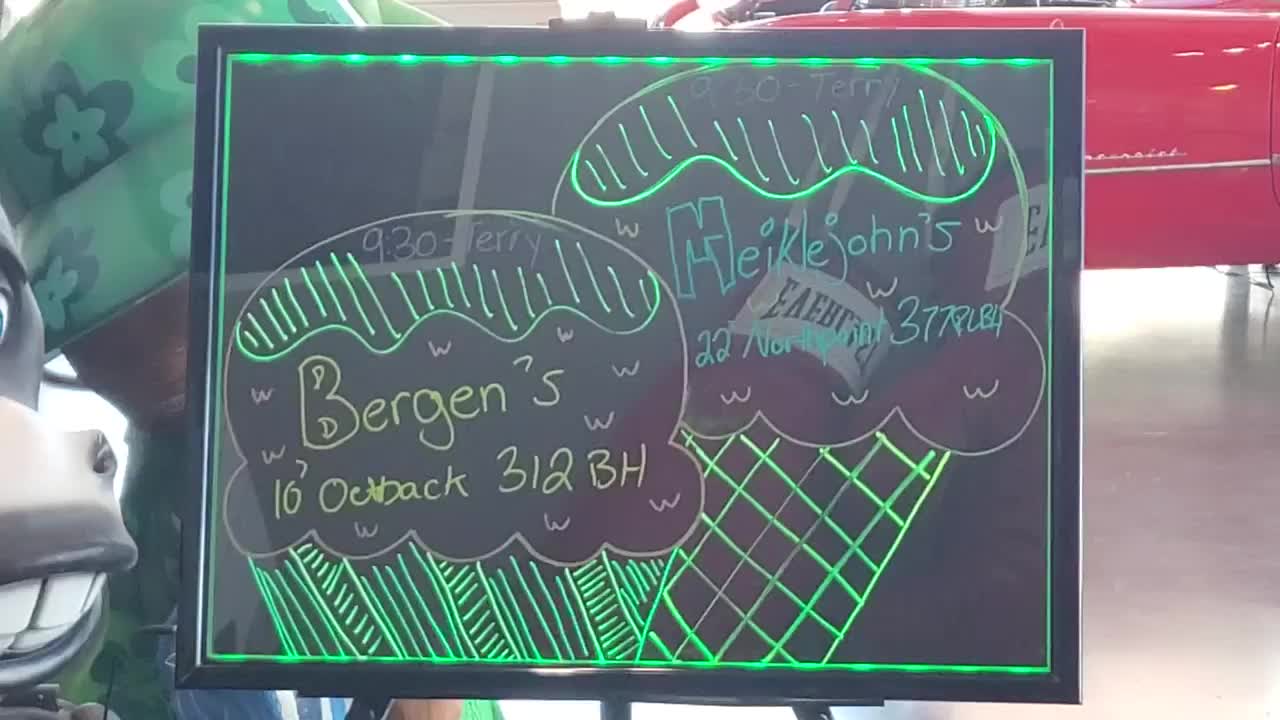 9:30-Terry
Heiklejohn's
22 Northpoint 377RLBH
9:30-Terry
Bergen's
10' Outback 312BH